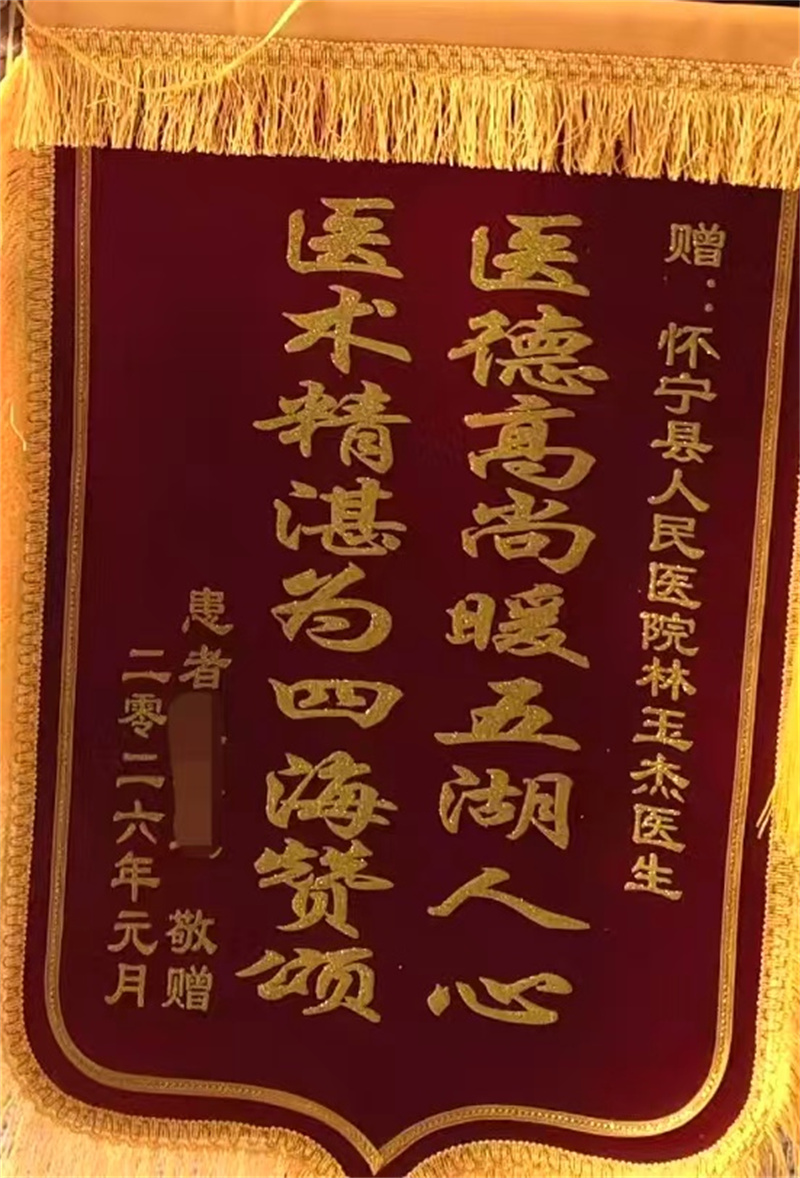 赠：怀宁县人民医院林玉杰医生
医德高尚暖五湖人心
医术精湛为四海赞颂
患者 敬赠
二零二六年元月